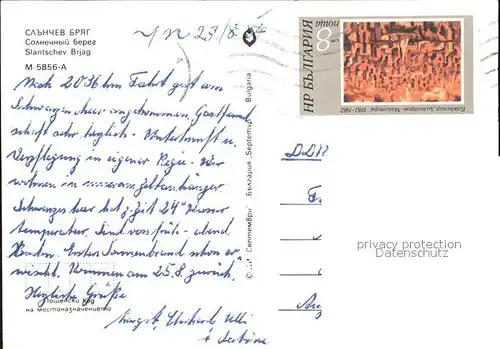 СЛЪНЧЕВ БРЯГ
Солнечный берег
Slantschev Brjag
М-5856-А
Nach 2036 km Fahrt gut am
Schwarzen Meer angekommen. Gastfreund
schaft sehr herzlich. Unterkunft u.
Verpflegung in eigener Regie. Wir
wohnen in unserem Zeltanhänger
Schwarzes Meer hat z. Zeit 24° Wasser
temperatur. Sind von früh - abend
Baden. Erster Sonnenbrand schon er
wischt. Kommen am 25.8 zurück.
Herzliche Grüße
Margit, Eberhard, Ulli
+ Sabine
Пощенски код
на местоназначението
"Септември" България "Septemvri" Bulgaria
НР БЪЛГАРИЯ
поща
8
Владимир Димитров - Майстора 1882-1982
DDR
privacy protection
Datenschutz